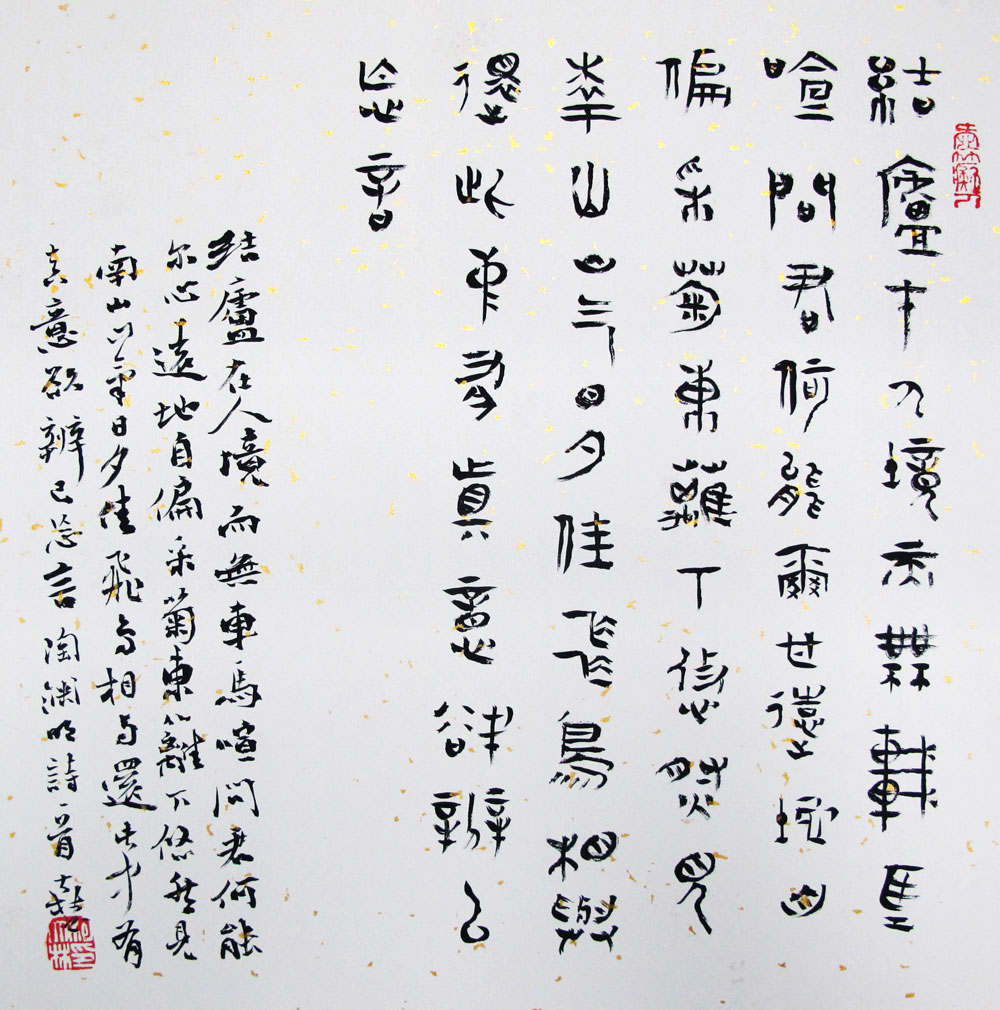 結廬在人境而無車馬
喧問君何能爾心遠地自
偏采菊東籬下悠然見
南山山气日夕佳飛鳥相與
還此中有眞意欲辯已
忘言
结廬在人境而無車馬喧问君何能
尔心遠地自偏采菊東籬下悠然見
南山山氣日夕佳飛鳥相与還此中有
真意欲辨已忘言陶渊明詩一首